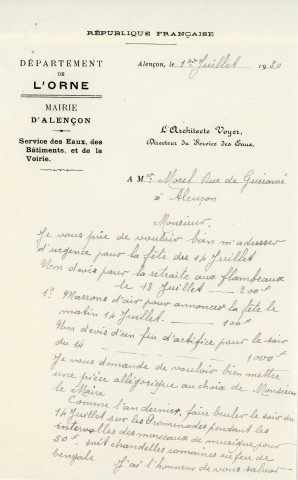 RÉPUBLIQUE FRANÇAISE
DÉPARTEMENT
DE
L'ORNE
MAIRIE
D'ALENÇON
Service des Eaux, des
Bâtiments, et de la
Voirie.
Alençon, le 1er Juillet 1920
L'Architecte Voyer,
Directeur du Service des Eaux.
A Mr Morel Rue de
à Alençon
Monsieur,
Je vous prie de vouloir bien m'adresser
d'urgence pour la fête du 14 Juillet
Un devis pour la retraite aux flambeaux
le 13 Juillet — 200f
1º Marrons d'air pour annoncer la fête le
matin 14 Juillet — 100f
Un devis d'un feu d'artifice pour le soir
du 14 — 1000f
Je vous demande de vouloir bien mettre
une pièce allégorique au choix de Monsieur
le Maire
Comme l'an dernier, faire bruler le soir du
14 Juillet sur les Promenades pendant les
intervalles des morceaux de musique pour
50f soit chandelles romaines ou feu de
bengale
J'ai l'honneur de vous saluer